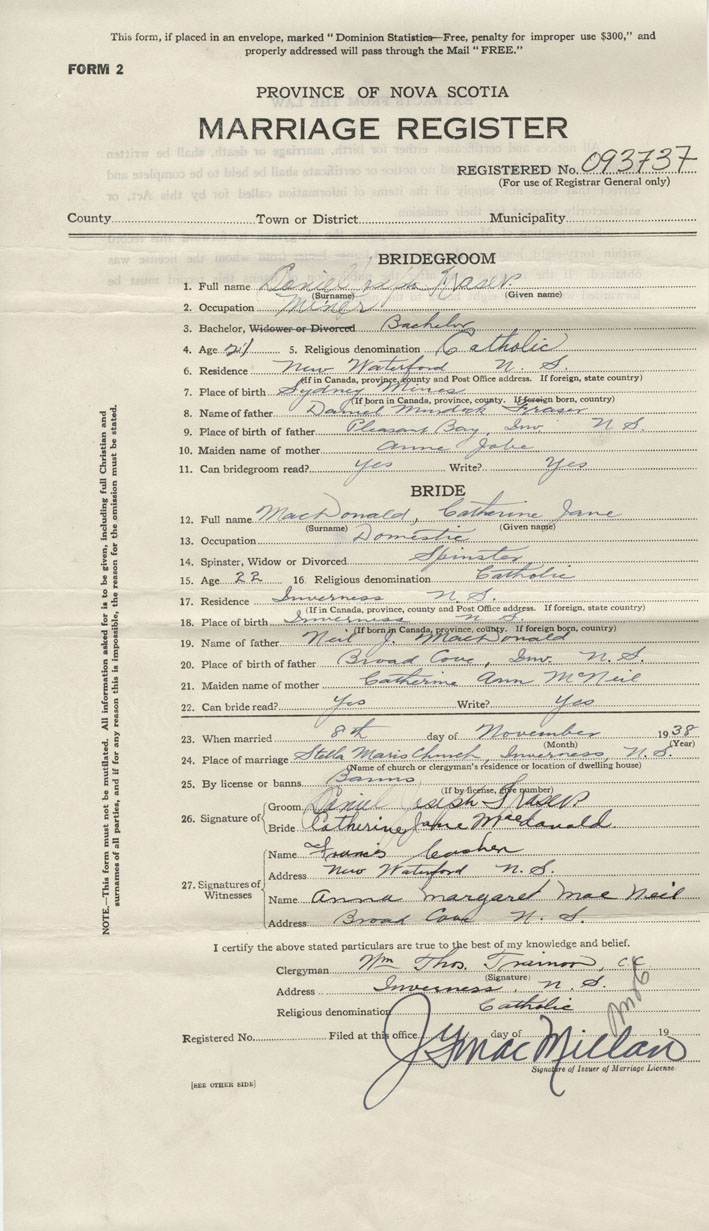 This form, if placed in an envelope, marked "Dominion Statistics—Free, penalty for improper use $300," and
properly addressed will pass through the Mail "FREE."
FORM 2
PROVINCE OF NOVA SCOTIA
MARRIAGE REGISTER
REGISTERED No. 093737
(For use of Registrar General only)
County Town or District Municipality
BRIDEGROOM
1. Full name Daniel Joseph Fraser
(Surname) (Given name)
2. Occupation Miner
3. Bachelor, Widower or Divorced Bachelor
4. Age 21 5. Religious denomination Catholic
6. Residence New Waterford N. S.
(If in Canada, province, county and Post Office address. If foreign, state country)
7. Place of birth Sydney Mines
(If born in Canada, province, county. If foreign born, country)
8. Name of father Daniel Murdock Fraser
9. Place of birth of father Pleasant Bay, Inv. N S.
10. Maiden name of mother Anne
11. Can bridegroom read? yes Write? Yes
BRIDE
12. Full name MacDonald, Catherine Jane
(Surname) (Given name)
13. Occupation Domestic
14. Spinster, Widow or Divorced Spinster
15. Age 22 16. Religious denomination Catholic
17. Residence Inverness N. S.
(If in Canada, province, county and Post Office address. If foreign, state country)
18. Place of birth Inverness N. S.
(If born in Canada, province, county. If foreign born, country)
19. Name of father Neil J. MacDonald
20. Place of birth of father Broad Cove, Inv. N. S.
21. Maiden name of mother Catherine Ann McNeil
22. Can bride read? Yes Write? Yes
23. When married 8th day of November 1938
(Month) (Year)
24. Place of marriage Stella Maris Church, Inverness, N. S.
(Name of church or clergyman's residence or location of dwelling house)
25. By license or banns Banns
(If by license, give number)
26. Signature of
Groom Daniel Joseph Fraser
Bride Catherine Jane MacDonald
27. Signatures of Witnesses
Name Francis
Address New Waterford N. S.
Name Anna Margaret Mac Neil
Address Broad Cove N. S.
I certify the above stated particulars are true to the best of my knowledge and belief.
Clergyman Wm Thos. Trainor, C.C.
(Signature)
Address Inverness, N. S.
Religious denomination Catholic
Registered No. Filed at this office day of 19
MacMillan
Signature of Issuer of Marriage License
[SEE OTHER SIDE]
NOTE.—This form must not be mutilated. All information asked for is to be given, including full Christian and
surnames of all parties, and if for any reason this is impossible, the reason for the omission must be stated.